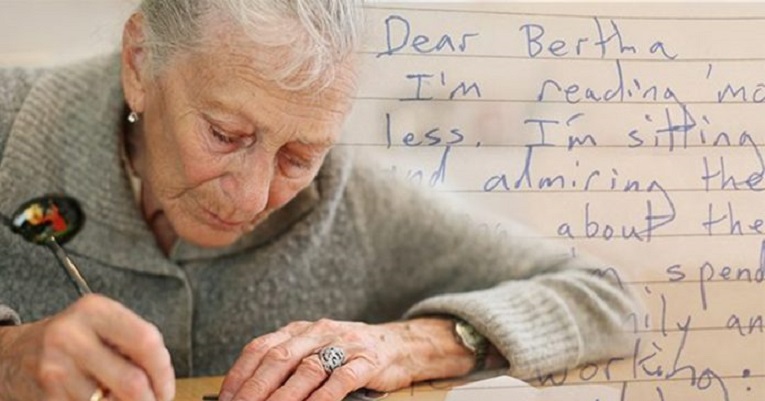 Dear Bertha
I'm reading 'mo
less. I'm sitting
and admiring the
about the
spend
ily an
working.